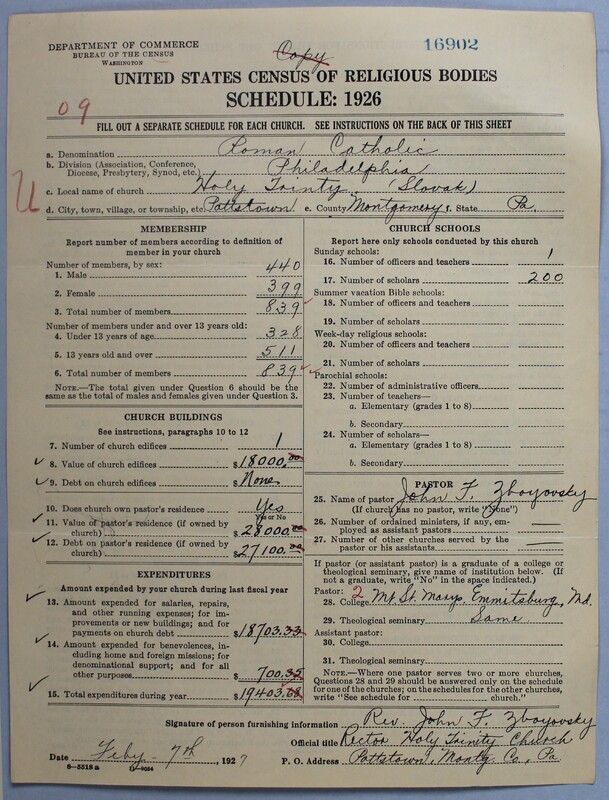 DEPARTMENT OF COMMERCE
BUREAU OF THE CENSUS
WASHINGTON
Copy
16902
UNITED STATES CENSUS OF RELIGIOUS BODIES
SCHEDULE: 1926
09
FILL OUT A SEPARATE SCHEDULE FOR EACH CHURCH. SEE INSTRUCTIONS ON THE BACK OF THIS SHEET
a. Denomination Roman Catholic
b. Division (Association, Conference, Diocese, Presbytery, Synod, etc.) Philadelphia
c. Local name of church Holy Trinity (Slovak)
U
d. City, town, village, or township, etc. Pottstown e. County Montgomery f. State Pa.
MEMBERSHIP
Report number of members according to definition of
member in your church
Number of members, by sex:
1. Male 440
2. Female 399
3. Total number of members 839
Number of members under and over 13 years old:
4. Under 13 years of age 328
5. 13 years old and over 511
6. Total number of members 839
NOTE.—The total given under Question 6 should be
same as the total of males and females given under Question 3.
CHURCH BUILDINGS
See instructions, paragraphs 10 to 12
7. Number of church edifices 1
8. Value of church edifices $18000.00
9. Debt on church edifices $None
10. Does church own pastor's residence Yes
Yes or No
11. Value of pastor's residence (if owned by
church) $28000.00
12. Debt on pastor's residence (if owned by
church) $27100.00
EXPENDITURES
Amount expended by your church during last fiscal year
13. Amount expended for salaries, repairs,
and other running expenses; for im-
provements or new buildings; and for
payments on church debt $18703.33
14. Amount expended for benevolences, in-
cluding home and foreign missions; for
denominational support; and for all
other purposes 700.35
15. Total expenditures during year $19403.68
CHURCH SCHOOLS
Report here only schools conducted by this church
Sunday schools:
16. Number of officers and teachers 1
17. Number of scholars 200
Summer vacation Bible schools:
18. Number of officers and teachers
19. Number of scholars
Week-day religious schools:
20. Number of officers and teachers
21. Number of scholars
Parochial schools:
22. Number of administrative officers
23. Number of teachers—
a. Elementary (grades 1 to 8)
b. Secondary
24. Number of scholars—
a. Elementary (grades 1 to 8)
b. Secondary
PASTOR
25. Name of pastor John F. Zboyovsky
(If church has no pastor, write "None")
26. Number of ordained ministers, if any, em-
ployed as assistant pastors
27. Number of other churches served by the
pastor or his assistants
If pastor (or assistant pastor) is a graduate of a college or
theological seminary, give name of institution below. (If
not a graduate, write "No" in the space indicated.)
Pastor: 2
28. College Mt. St. Marys. Emmitsburg, Md.
29. Theological seminary Same
Assistant pastor:
30. College
31. Theological seminary
NOTE.—Where one pastor serves two or more churches,
Questions 28 and 29 should be answered only on the schedule
for one of the churches; on the schedules for the other churches,
write "See schedule for church."
Signature of person furnishing information Rev. John F. Zboyovsky
Official title Rector Holy Trinity Church
Date Feby. 7th, 1927 P. O. Address Pottstown, Montg. Co., Pa.